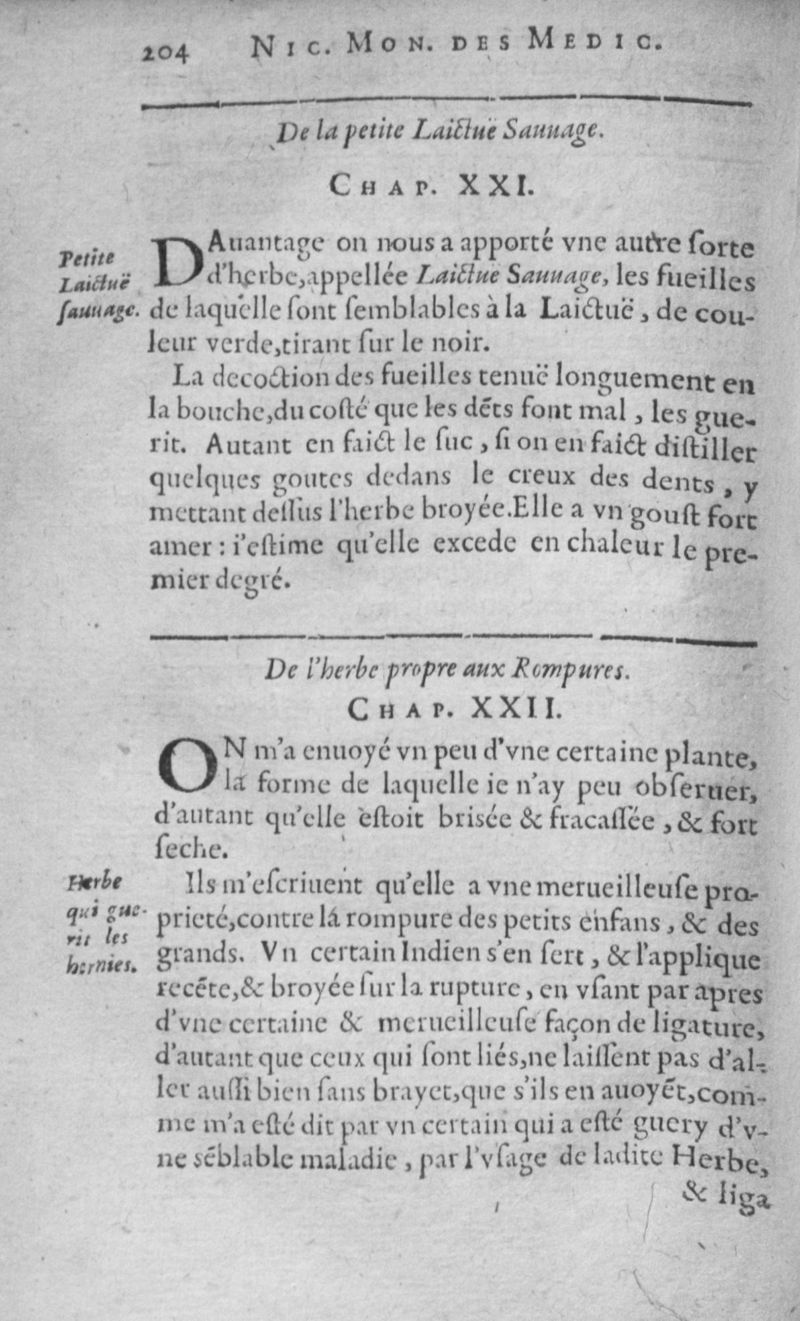 204 NIC. MON. DES MEDIC.
De la petite Laictuë Sauuage.
CHAP. XXI.
Petite
Laictuë
ſauuage.
DAuantage on nous a apporté vne autre ſorte
d'herbe, appellée Laictuë Sauuage, les fueilles
de laquelle ſont ſemblables à la Laictuë, de cou-
leur verde, tirant ſur le noir.
La decoction des fueilles tenuë longuement en
la bouche, du coſté que les dẽts font mal, les gue-
rit. Autant en faict le ſuc, ſi on en faict diſtiller
quelques goutes dedans le creux des dents, y
mettant deſſus l'herbe broyée. Elle a vn gouſt fort
amer : i'eſtime qu'elle excede en chaleur le pre-
mier degré.
De l'herbe propre aux Rompures.
CHAP. XXII.
ON m'a enuoyé vn peu d'vne certaine plante,
la forme de laquelle ie n'ay peu obſeruer,
d'autant qu'elle eſtoit brisée & fracaſſée, & fort
ſeche.
Herbe
qui gue-
rit les
hernies.
Ils m'eſcriuent qu'elle a vne merueilleuſe pro-
prieté, contre la rompure des petits enfans, & des
grands. Vn certain Indien s'en ſert, & l'applique
recẽte, & broyée ſur la rupture, en vſant par apres
d'vne certaine & merueilleuſe façon de ligature,
d'autant que ceux qui ſont liés, ne laiſſent pas d'al-
ler auſſi bien ſans brayet, que s'ils en auoyẽt, com-
me m'a eſté dit par vn certain qui a eſté guery d'v-
ne sẽblable maladie, par l'vſage de ladite Herbe,
& liga